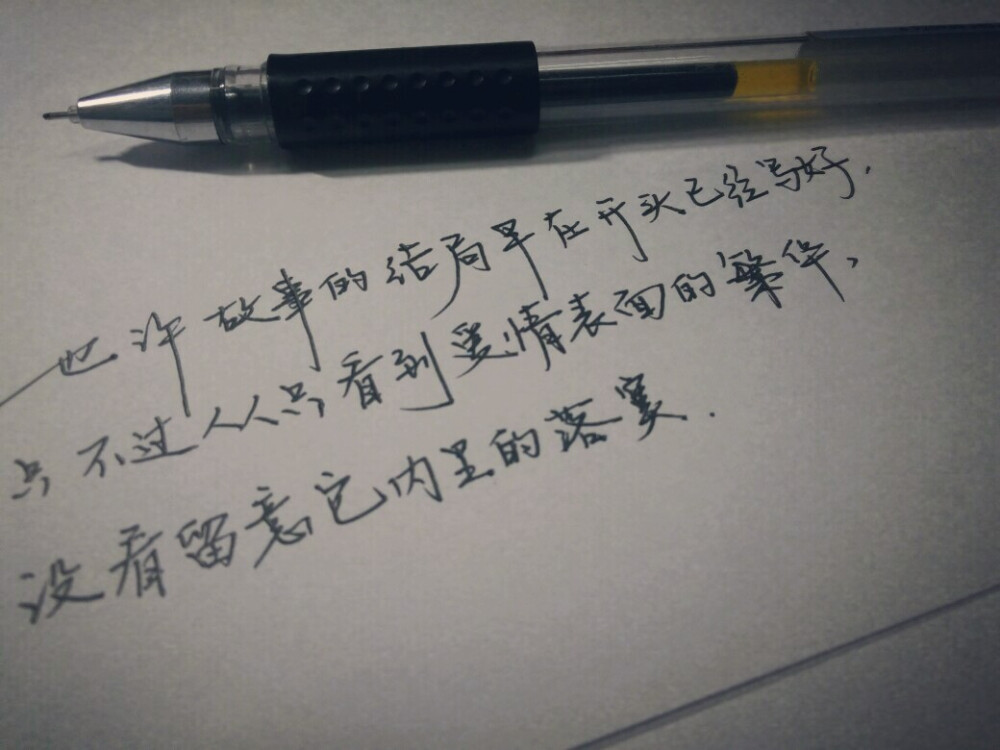 也许故事的结局早在开头已经写好.
只不过人人只看到爱情表面的繁华、
没看留意它内里的落寞.